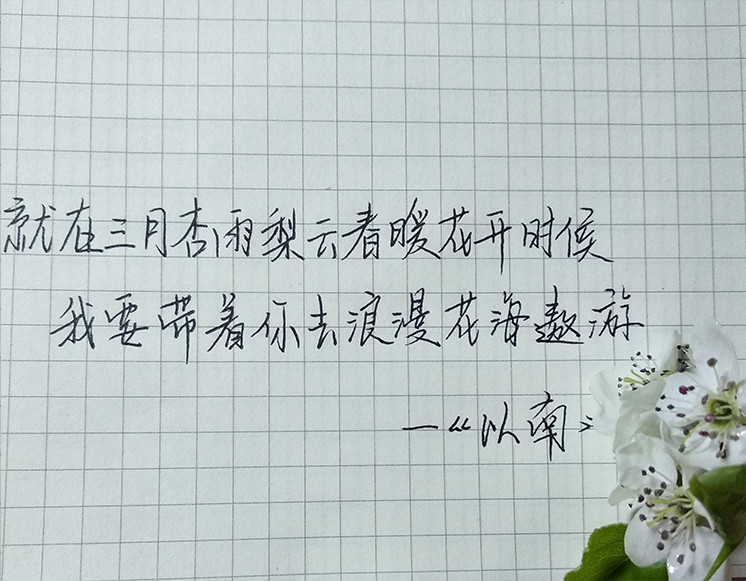 就在三月杏雨梨云春暖花开时候
我要带着你去浪漫花海遨游
—《以南》